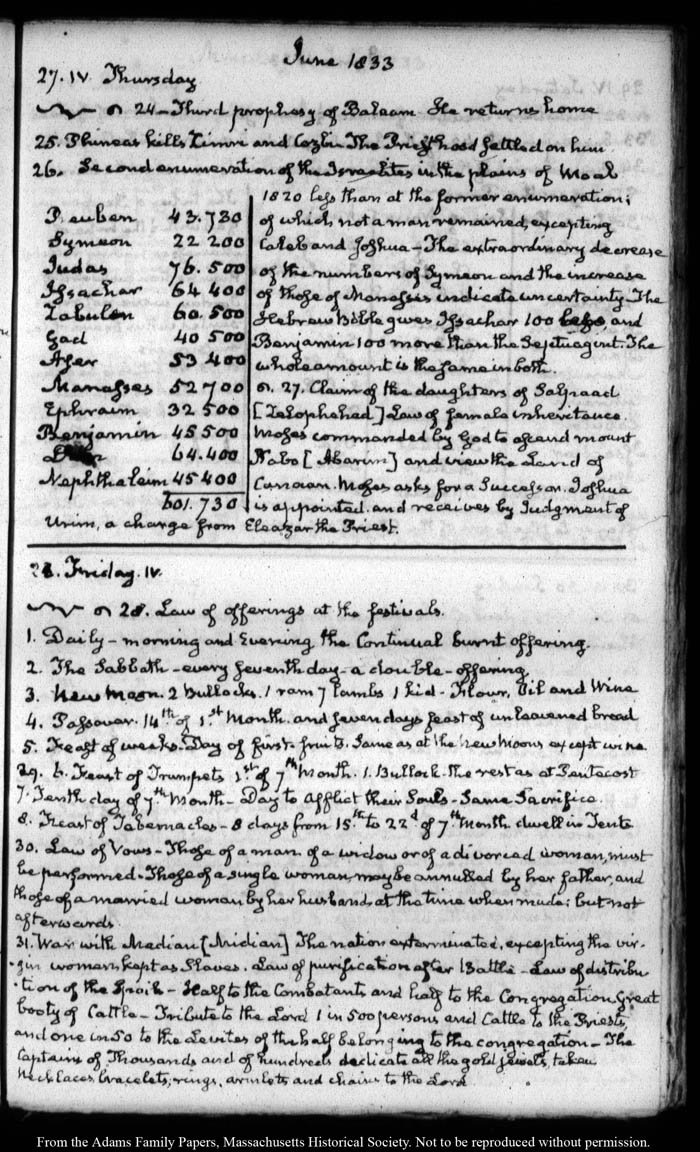 June 1833
27. IV Thursday
24 - Third prophesy of Balaam. He returns home
25. Phineas kills Zimri and Cozbi. The Priesthood settled on him
26. Second enumeration of the Israelites in the plains of Moab
Reuben 43.730
Symeon 22 200
Judas 76.500
Issachar 64 400
Zabulon 60.500
Gad 40 500
Aser 53 400
Manasses 52 700
Ephraim 32 500
Benjamin 45 500
64.400
Nephthaleim 45 400
601.730
1820 less than at the former enumeration;
of which not a man remained, excepting
Caleb and Joshua - The extraordinary decrease
of the numbers of Symeon and the increase
of those of Manasses indicate uncertainty. The
Hebrew Bible gives Issachar 100 less, and
Benjamin 100 more than the Septuagint. The
whole amount is the same in both.
27. Claim of the daughters of Salpaad
[Zelophehad] Law of female inheritance.
Moses commanded by God to ascend mount
Nabo [Abarim] and view the Land of
Canaan. Moses asks for a Successor. Joshua
is appointed. and receives by Judgment of
Urim, a charge from Eleazar the Priest.
28. Friday. IV.
28. Law of offerings at the festivals.
1. Daily - morning and Evening the Continual burnt offering.
2. The Sabbath - every seventh day - a double - offering.
3. New Moon. 2 Bullocks. 1 ram 7 lambs 1 kid - Flour, Oil and Wine
4. Passover. 14th of 1st Month. and seven days feast of unleavened bread
5. Feast of weeks. Day of first-fruits. Same as at the New Moons except wine
29. 6. Feast of Trumpets 1st of 7th Month. 1. Bullock. the rest as at Pentecost
7. Tenth day of 7th Month - Day to afflict their Souls - Same Sacrifice.
8. Feast of Tabernacles - 8 days from 15th to 22d of 7th Month dwell in Tents
30. Law of Vows - Those of a man. of a widow or of a divorced woman, must
be performed. Those of a single woman may be annulled by her father, and
those of a married woman by her husband, at the time when made: but not
afterwards.
31. War with Madian [Midian] The nation exterminated, excepting the vir-
gin women kept as Slaves. Law of purification after Battle - Law of distribu
tion of the Spoils - Half to the Combatants and half to the Congregation. Great
booty of Cattle - Tribute to the Lord 1 in 500 persons and Cattle to the Priests,
and one in 50 to the Levites of the half belonging to the congregation - The
Captains of Thousands and of hundreds dedicate all the gold jewels, taken
Necklaces, bracelets, rings, armlets and chains to the Lord
From the Adams Family Papers, Massachusetts Historical Society. Not to be reproduced without permission.